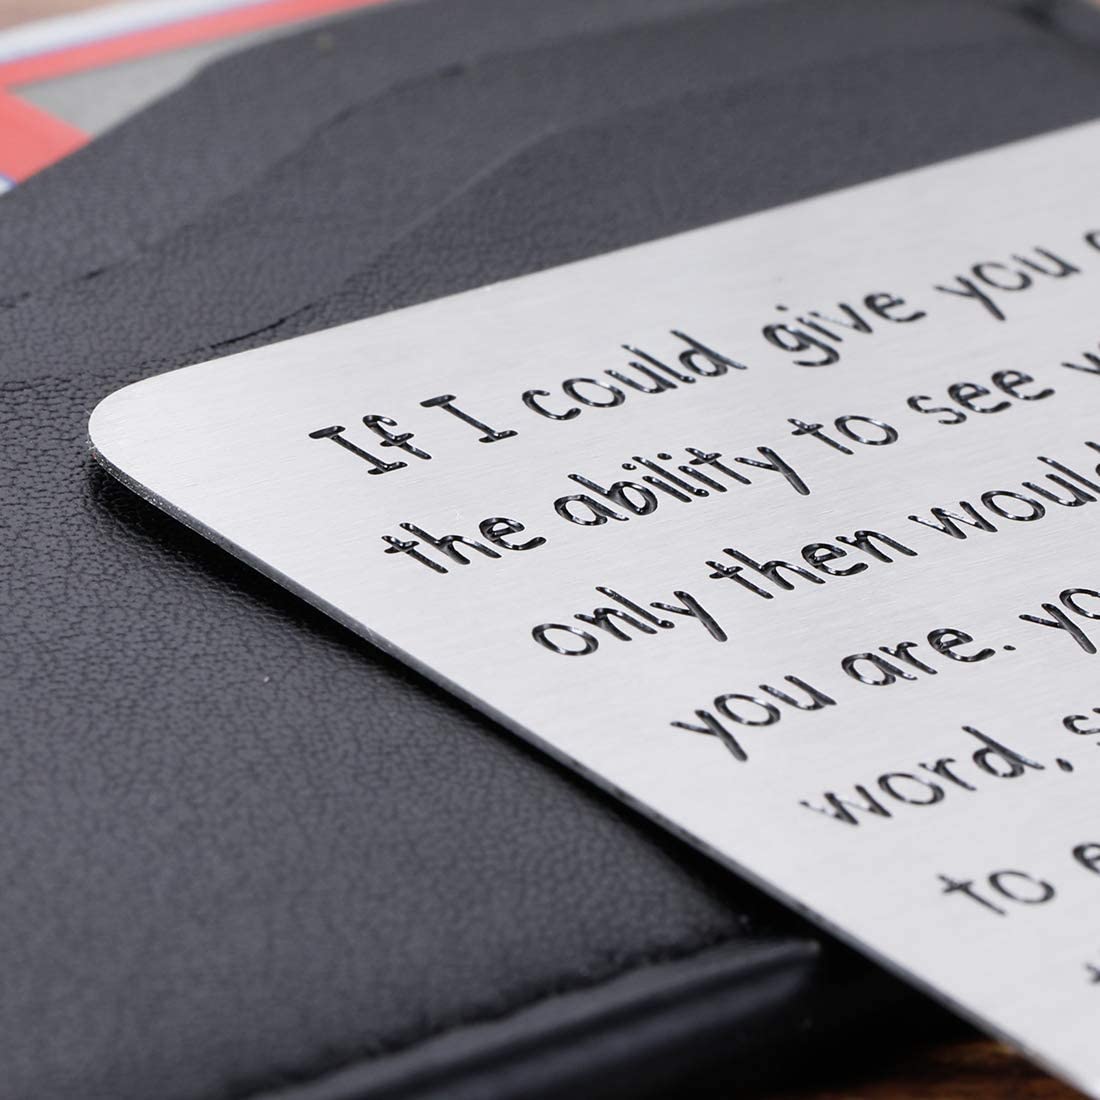 If I could give you
the ability to see
only then would
you are. yo
word, s
to e